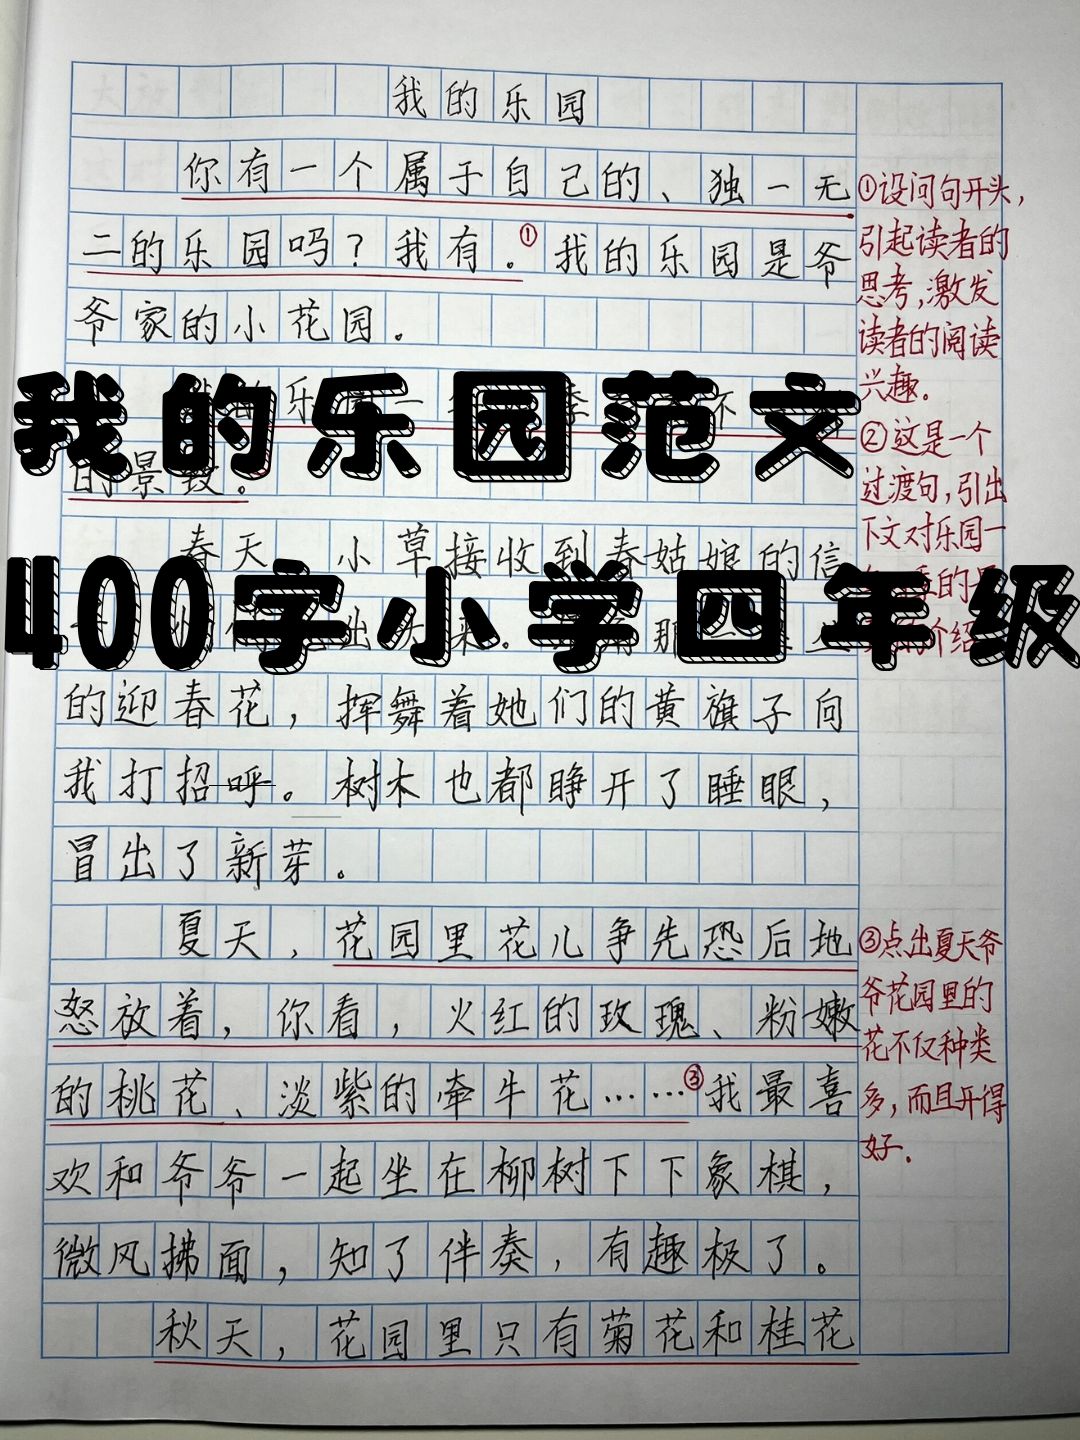 我的乐园
你有一个属于自己的、独一无
二的乐园吗？我有。① 我的乐园是爷
爷家的小花园。
乐
不
的景致。
我的乐园范文
春天，小草接收到春姑娘的信
400字小学四年级
出
来。
那
的迎春花，挥舞着她们的黄旗子向
我打招呼。树木也都睁开了睡眼，
冒出了新芽。
夏天，花园里花儿争先恐后地
怒放着，你看，火红的玫瑰、粉嫩
的桃花、淡紫的牵牛花……③我最喜
欢和爷爷一起坐在柳树下下象棋，
微风拂面，知了伴奏，有趣极了。
秋天，花园里只有菊花和桂花
①设问句开头，
引起读者的
思考，激发
读者的阅读
兴趣.
②这是一个
过渡句，引出
下文对乐园一
的
介绍
③点出夏天爷
爷花园里的
花不仅种类
多，而且开得
好.